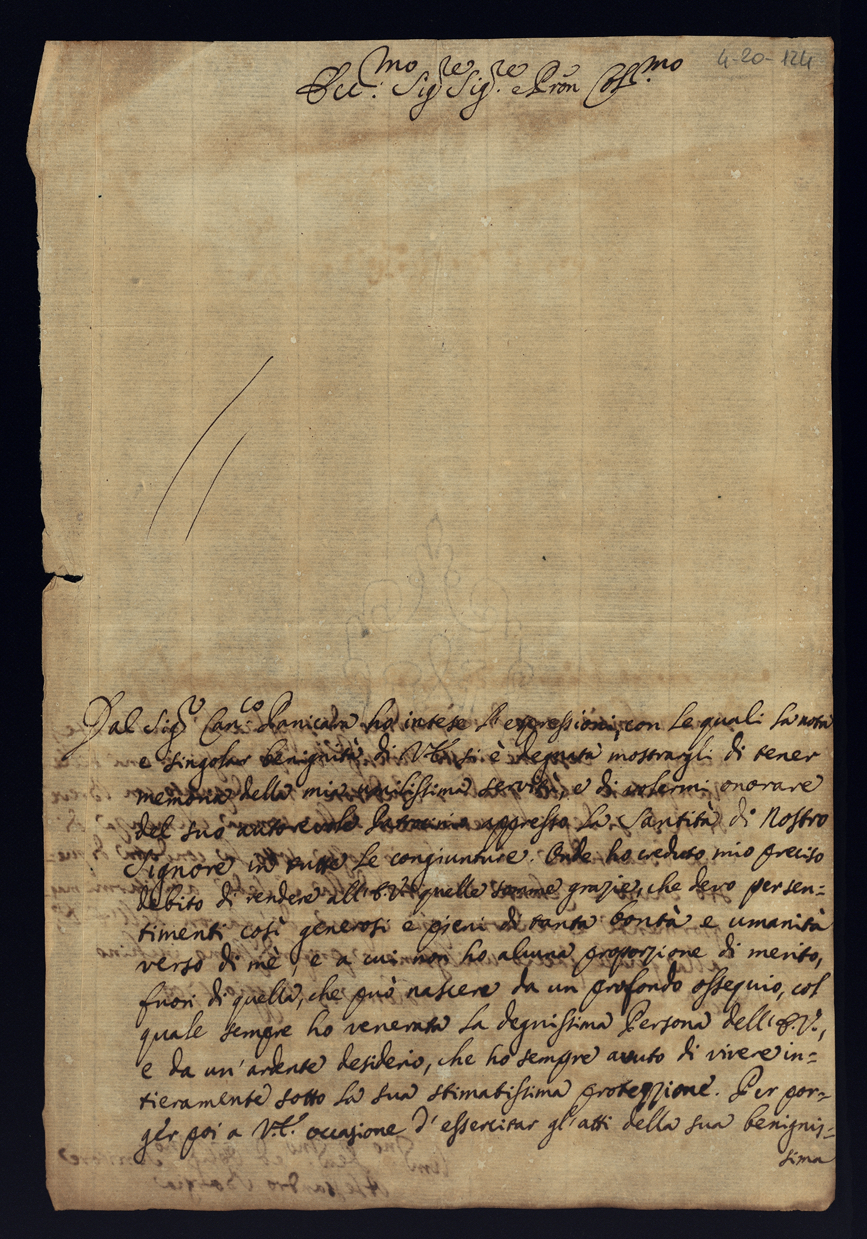 4-20-124
Ecc.mo Sig.re Sig.re e Pron Col.mo
Dal Sig.r Can.co Panicala ho intese l'espressioni, con le quali la nota
e singolar benignità di V.E. si è degnata mostrargli di tener
memoria della mia umilissima servitù, e di volermi onorare
del suo autorevole Patrocinio appresso la Santità di Nostro
Signore in tutte le congiunture. Onde ho creduto mio preciso
debito di rendere all'E.V. quelle somme grazie, che devo per sen=
timenti così generosi e pieni di tanta bontà e umanità
verso di me, e a cui non ho alcuna proporzione di merito,
fuori di quella, che può nascere da un profondo ossequio, col
quale sempre ho venerata la degnissima Persona dell'E.V.,
e da un'ardente desiderio, che ho sempre avuto di vivere in=
tieramente sotto la sua stimatissima protezzione. Per por=
ger poi a V.E. occasione d'essercitar gl'atti della sua benignis=
sima